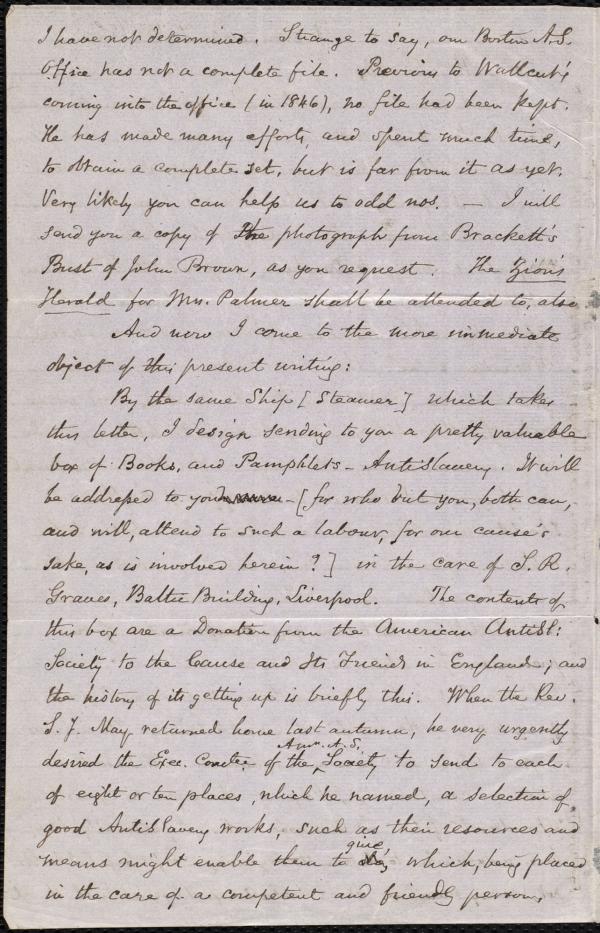 I have not determined. Strange to say, our Boston A.S.
Office has not a complete file. Previous to Wallcut's
coming into the office (in 1846), no file had been kept.
He has made many efforts, and spent much time,
to obtain a complete set, but is far from it as yet.
Very likely you can help us to odd nos. — I will
send you a copy of the photograph from Brackett's
Bust of John Brown, as you request. The Zion's
Herald for Mrs. Palmer shall be attended to, also
And now I come to the more immediate
object of this present writing:
By the same Ship [Steamer] which takes
this letter, I design sending to you a pretty valuable
box of Books, and Pamphlets – Antislavery. It will
be addressed to you – [for who but you, both can,
and will, attend to such a labour, for our cause's
sake, as is involved herein?] in the care of S. R.
Graves, Baltic Building, Liverpool. The contents of
this box are a Donation from the American AntiSl:
Society to the Cause and Its Friends in England; and
the history of its getting up is briefly this. When the Rev.
S. J. May returned home last autumn, he very urgently
desired the Exec. Comtee. of the Amn. A.S. Society to send to each
of eight or ten places, which he named, a selection of
good AntiSlavery works, such as their resources and
means might enable them to give, which, being placed
in the care of a competent and friendly person,